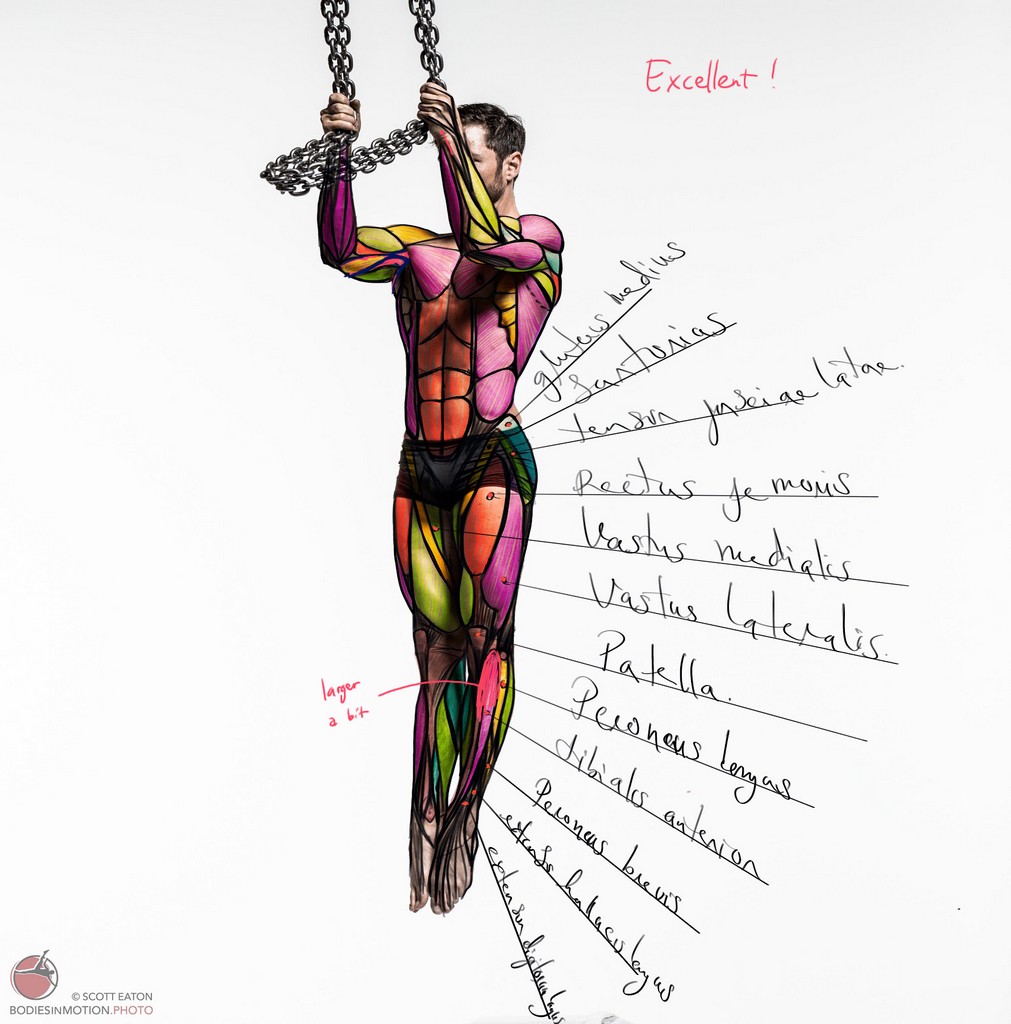 Excellent!
gluteus medius
Sartorius
tensor fasciae latae.
Rectus femoris
Vastus medialis
Vastus lateralis.
Patella.
larger
a bit
Peroneus longus
tibialis anterior
Peroneus brevis
extensor hallucis longus
extensor digitorum longus
© SCOTT EATON
BODIESINMOTION.PHOTO